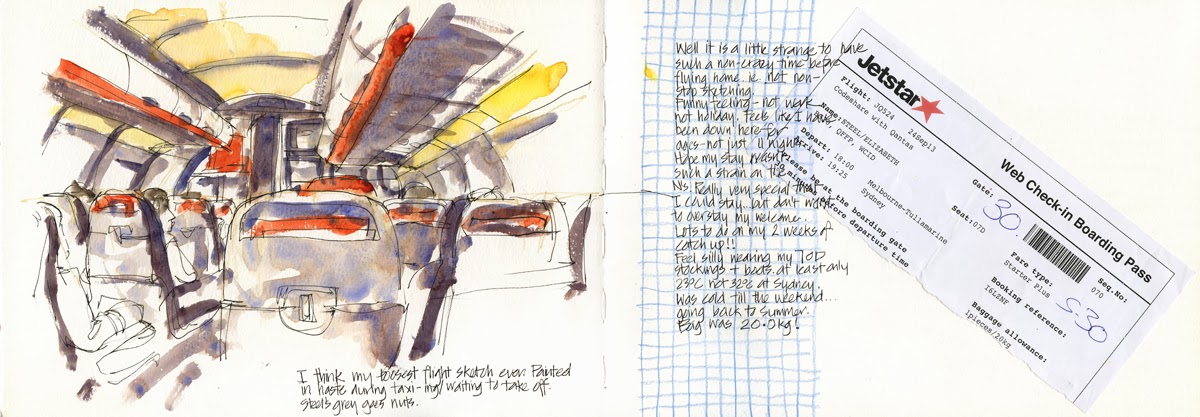 I think my loosest flight sketch ever. Painted
in haste during taxi-ing/waiting to take off.
Steel's grey goes nuts.
Well it is a little strange to have
such a non-crazy time before
flying home..ie. not non-
stop sketching.
Funny feeling - not work
not holiday. Feels like I have
been down here for
ages - not just 11 nights
Hope my stay wasn't
such a strain on the
N's. Really very special that
I could stay...but don't want
to overstay my welcome.
Lots to do on my 2 weeks of
catch up!!
Feel silly wearing my 70D
stockings + boots. at least only
23°C not 32° at Sydney.
Was cold till the weekend...
going back to summer.
Bag was 20.0kg!
Jetstar
Web Check-in Boarding Pass
Flight: JQ524 24Sep13
Codeshare with Qantas
Name: STEEL/ELIZABETH
QFFP, WCID
Depart: 18:00 Melbourne-Tullamarine
Arrive: 19:25 Sydney
Please be at the boarding gate
minutes before departure time
Gate: 30.
Seat: 07D
Seq-No:
070
Fare type:
Starter Plus
5:30
Booking reference:
I6LENF
Baggage allowance:
1pieces/20kg